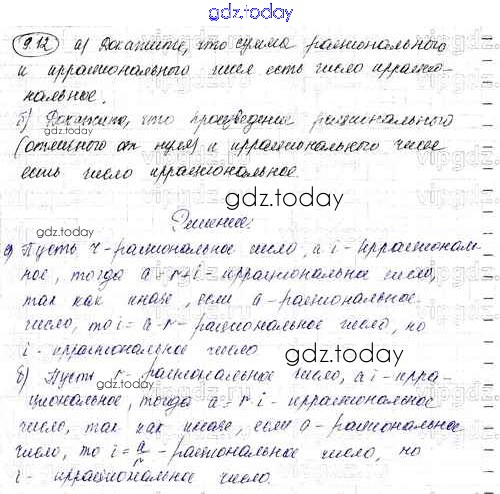 gdz.today
9.12 а) Докажите, что сумма рационального
и иррационального чисел есть число иррацио-
нальное.
б) Докажите, что произведение рационального
(отличного от нуля) и иррационального чисел
есть число иррациональное.
gdz.today
Решение:
а) Пусть r - рациональное число, а i - иррациональ-
ное, тогда a = r + i - иррациональное число,
так как иначе, если a - рациональное
число, то i = a - r - рациональное число, но
i - иррациональное число
gdz.today
б) Пусть r - рациональное число, а i - ирра-
циональное, тогда a = r i - иррациональное
число, так как иначе, если a - рациональное
число, то i = a/r - рациональное число, но
i - иррациональное число.
gdz.today